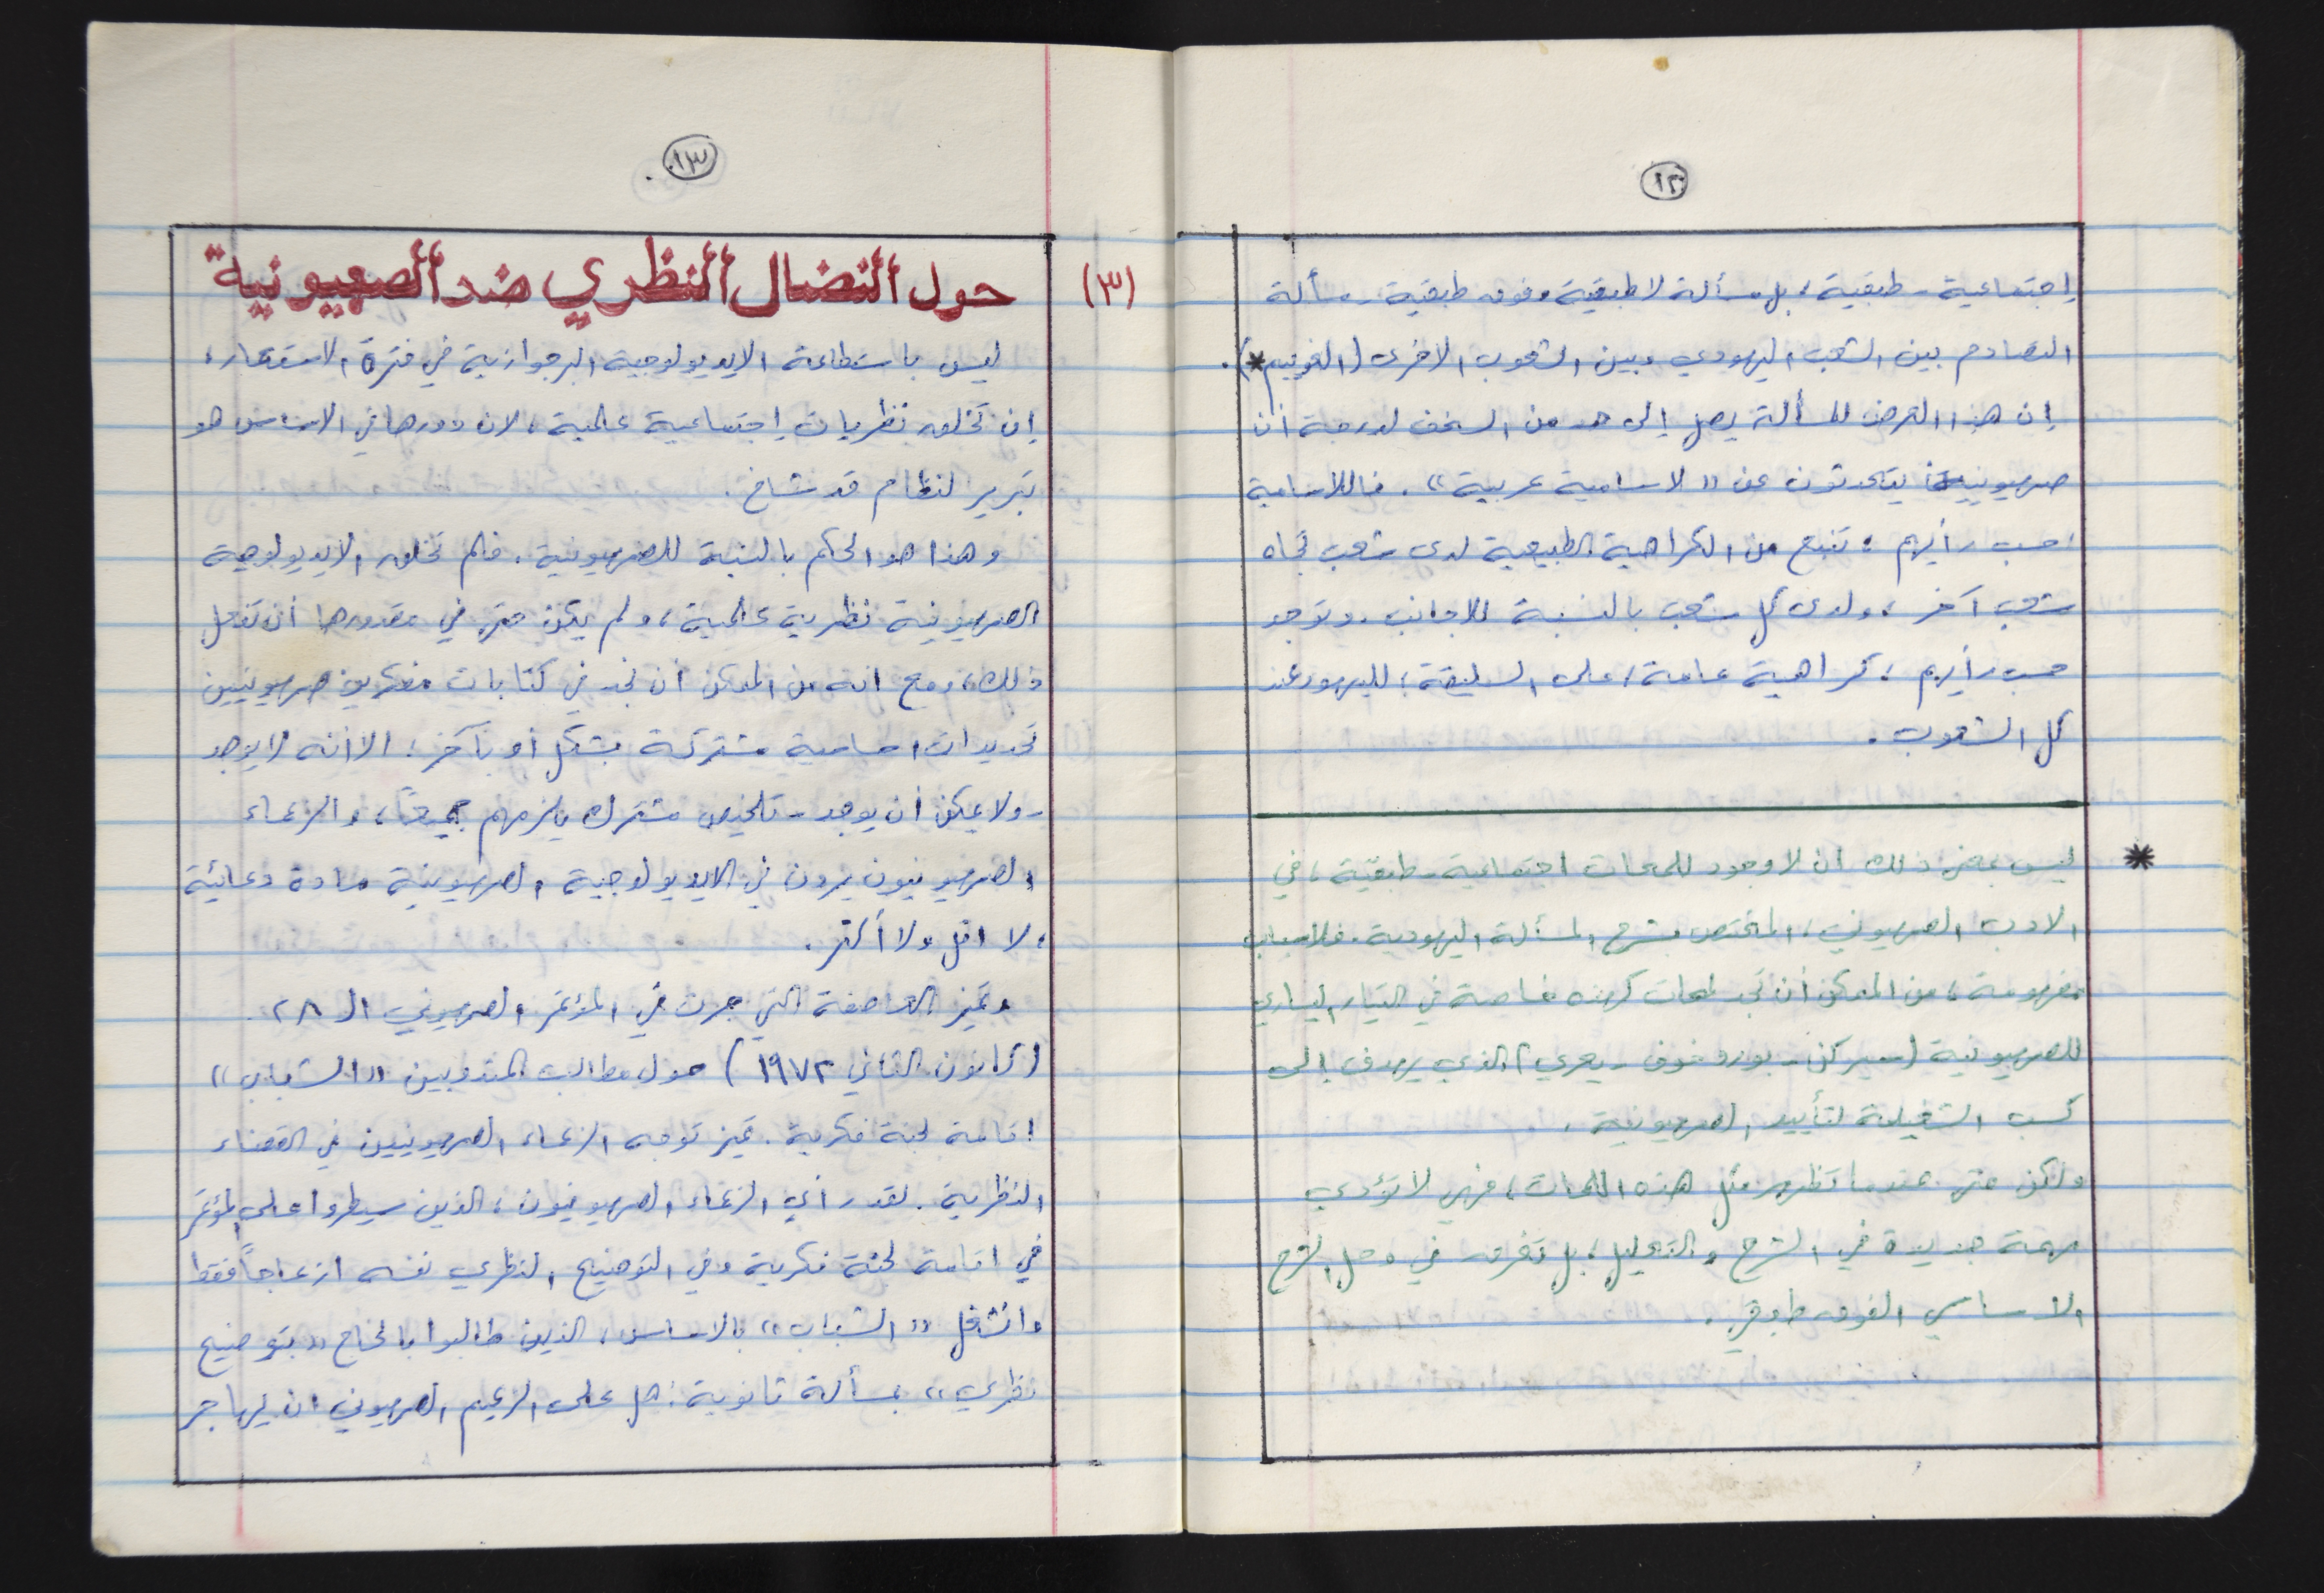 ١٢
إجتماعية - طبقية، بل مسألة لا طبقية وفوق طبقية - مسألة
التصادم بين الشعب اليهودي وبين الشعوب الاخرى (الغوييم*).
إن هذا العرض للمسألة يصل إلى حد من السخف لدرجة أن
صهيونيين يتحدثون عن «لاسامية عربية». فاللاسامية
،حسب رأيهم، تنبع من الكراهية الطبيعية لدى شعب تجاه
شعب آخر، ولدى كل شعب بالنسبة للاجانب. وتوجد
حسب رأيهم، كراهية عامة، على السليقة، لليهود عند
كل الشعوب.
* ليس معنى ذلك ان لا وجود للمحات اجتماعية - طبقية، في
الادب الصهيوني، المختص بشرح المسألة اليهودية. فلاسباب
مفهومة، من الممكن أن نجد لمحات كهذه خاصة في التيار اليساري
للصهيونية (سيركن - بوروخوف - يعري) الذي يهدف إلى
كسب الشغيلة لتأييد الصهيونية.
ولكن حتى عندما تظهر مثل هذه اللمحات، فهي لا تؤدي
مهمة جديدة في الشرح والتحليل، بل تغرق في وحل الشرح
الاساسي الفوق طبقي.
١٣.
(٣) حول النضال النظري ضد الصهيونية
ليس باستطاعة الايديولوجية البرجوازية في فترة الاستعمار،
إن تخلق نظريات إجتماعية علمية، لان دورها في الاساس هو
تبرير لنظام قد شاخ.
وهذا هو الحكم بالنسبة للصهيونية. فلم تخلق الايديولوجية
الصهيونية نظرية علمية، ولم يكن حتى في مقدورها أن تفعل
ذلك، ومع انه من الممكن أن نجد في كتابات مفكرين صهيونيين
تحديدات اساسية مشتركة بشكل أو بآخر، الا أنه لا يوجد
- ولا يمكن أن يوجد - تلخيص مشترك يلزمهم جميعاً، والزعماء
الصهيونيون يرون في الايديولوجية الصهيونية مادة دعائية
، لا اقل ولا أكثر.
وتميز العاصفة التي جرت في المؤتمر الصهيوني الـ ٢٨
(كانون الثاني ١٩٧٢) حول مطالب المندوبين «الشباب»
اقامة لجنة فكرية. تميز توجه الزعماء الصهيونيين في القضاء
النظرية. لقد رأي الزعماء الصهيونيون، الذين سيطروا على المؤتمر
في اقامة لجنة فكرية وفي التوضيح النظري نفسه ازعاجاً فقط
وانشغل «الشباب» بالاساس، الذين طالبوا بالحاح «بتوضيح
نظري» بمسألة ثانوية: هل على الزعيم الصهيوني ان يهاجر